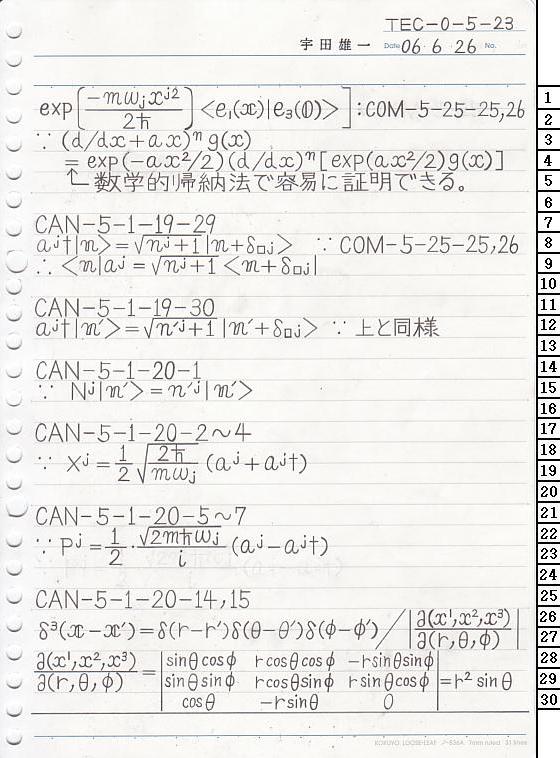 TEC-0-5-23
宇田雄一 Date 06. 6. 26 No.
exp[(-mωⱼxʲ²)/(2ℏ)] <e₁(x)|e₃(0)>] : COM-5-25-25,26
∵ (d/dx+ax)ⁿg(x)
= exp(-ax²/2)(d/dx)ⁿ[exp(ax²/2)g(x)]
↑ 数学的帰納法で容易に証明できる。
CAN-5-1-19-29
aʲ†|n> = √(nʲ+1) |n+δ□ⱼ> ∵ COM-5-25-25,26
∴ <n|aʲ = √(nʲ+1) <n+δ□ⱼ|
CAN-5-1-19-30
aʲ†|n'> = √(n'ʲ+1) |n'+δ□ⱼ> ∵ 上と同様
CAN-5-1-20-1
∵ Nʲ|n'> = n'ʲ|n'>
CAN-5-1-20-2～4
∵ Xʲ = (1/2)√(2ℏ/(mωⱼ)) (aʲ+aʲ†)
CAN-5-1-20-5～7
∵ Pʲ = (1/2)·(√(2mℏωⱼ)/i) (aʲ-aʲ†)
CAN-5-1-20-14,15
δ³(x-x') = δ(r-r')δ(θ-θ')δ(φ-φ') / |∂(x¹,x²,x³)/∂(r,θ,φ)|
∂(x¹,x²,x³)/∂(r,θ,φ) = | sinθcosφ rcosθcosφ -rsinθsinφ |
| sinθsinφ rcosθsinφ rsinθcosφ | = r²sinθ
| cosθ -rsinθ 0 |
KOKUYO LOOSE-LEAF ノ-836A 7mm ruled 31 lines
1
2
3
4
5
6
7
8
9
10
11
12
13
14
15
16
17
18
19
20
21
22
23
24
25
26
27
28
29
30